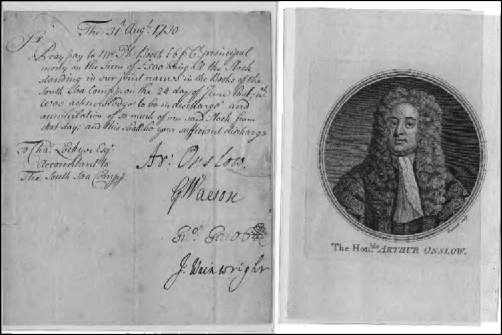 The 31st Augst 1730
Sr
Pray pay to Mr. Th. Scott 16 p Ct. principal
money on the sum of £ 500 being all the Stock
standing in our joint names in the Books of the
South Sea Compy. on the 24 day of June last, wch
we acknowledge to be in discharge and
annihilation of so much of our said Stock from
that day; and this shall be your sufficient discharge
To Cha. Lockyer Esqr
Accomptant to
The South Sea Compy.
Ar: Onslow.
G Watson
Geo. Jacob
J. Wainwright
The Hon.ble ARTHUR ONSLOW.